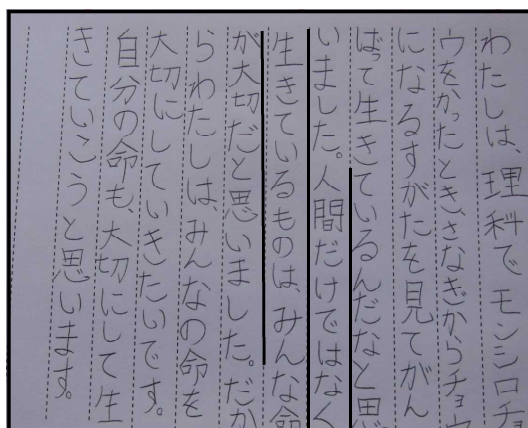 わたしは、理科でモンシロチョ
ウをかったとき、さなぎからチョウ
になるすがたを見てがん
ばって生きているんだなと思
いました。人間だけではなく
生きているものは、みんな命
が大切だと思いました。だか
らわたしは、みんなの命を
大切にしていきたいです。
自分の命も、大切にして生
きていこうと思います。